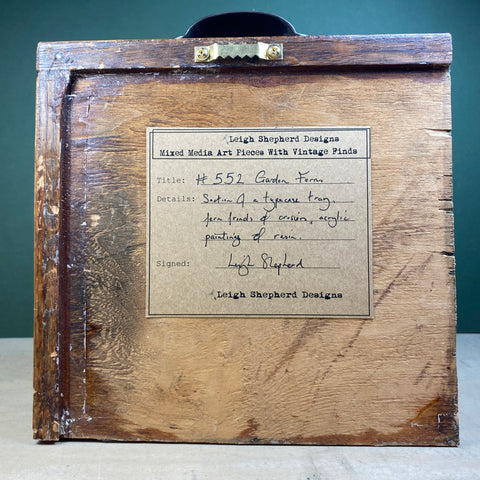 Leigh Shepherd Designs
Mixed Media Art Pieces With Vintage Finds
Title: #552 Garden Ferns
Details: Section of a typecase tray,
fern fronds & crossin, acrylic
paintings & resin.
Signed: Leigh Shepherd
Leigh Shepherd Designs